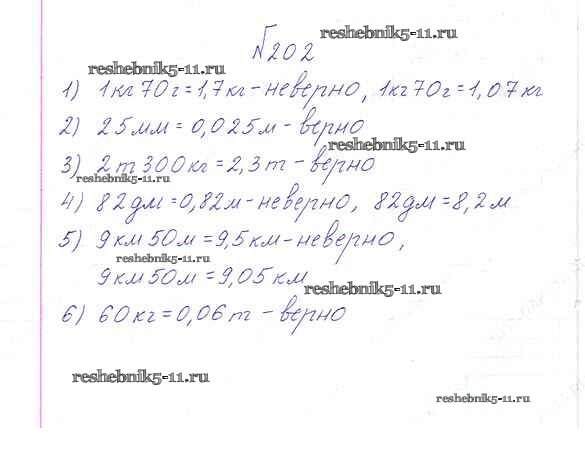 reshebnik5-11.ru
№202
reshebnik5-11.ru
1) 1кг70г=1,7кг-неверно, 1кг70г=1,07кг
2) 25мм=0,025м-верно
reshebnik5-11.ru
3) 2т300кг=2,3т-верно
reshebnik5-11.ru
4) 82дм=0,82м-неверно, 82дм=8,2м
5) 9км50м=9,5км-неверно,
reshebnik5-11.ru
9км50м=9,05км
reshebnik5-11.ru
6) 60кг=0,06т-верно
reshebnik5-11.ru
reshebnik5-11.ru